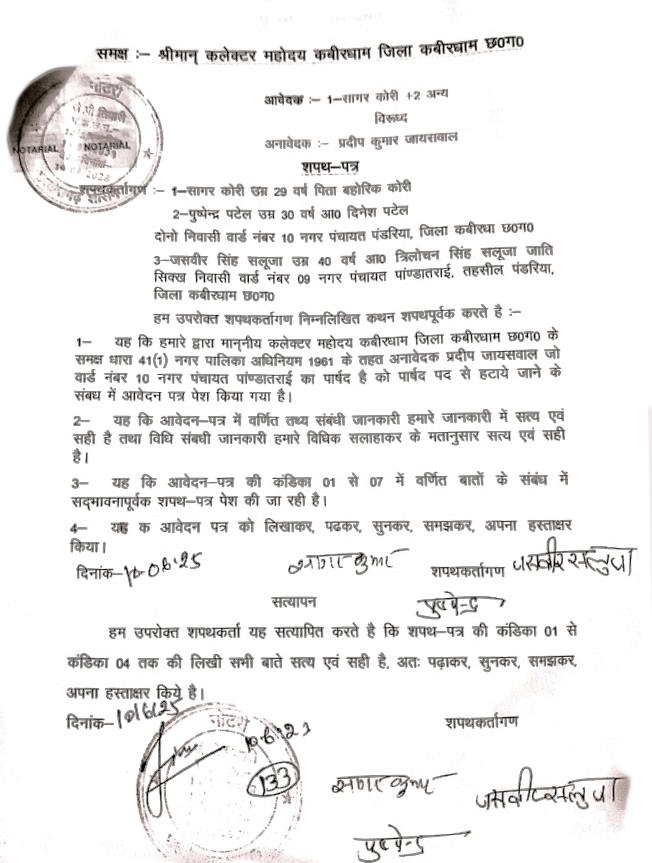 समक्ष :– श्रीमान् कलेक्टर महोदय कबीरधाम जिला कबीरधाम छ0ग0
नोटरी
NOTARIAL NOTARIAL
आवेदक :– 1–सागर कोरी +2 अन्य
विरूध्द
अनावेदक :– प्रदीप कुमार जायरावाल
शपथ–पत्र
शपथकर्तागण :– 1–सागर कोरी उम्र 29 वर्ष पिता बहोरिक कोरी
2–पुष्पेन्द्र पटेल उम्र 30 वर्ष आ0 दिनेश पटेल
दोनो निवासी वार्ड नंबर 10 नगर पंचायत पंडरिया, जिला कबीरधा छ0ग0
3–जसवीर सिंह सलूजा उम्र 40 वर्ष आ0 त्रिलोचन सिंह सलूजा जाति
सिक्ख निवासी वार्ड नंबर 09 नगर पंचायत पांण्डातराई, तहसील पंडरिया,
जिला कबीरधाम छ0ग0
हम उपरोक्त शपथकर्तागण निम्नलिखित कथन शपथपूर्वक करते है :–
1– यह कि हमारे द्वारा मान्नीय कलेक्टर महोदय कबीरधाम जिला कबीरधाम छ0ग0 के
समक्ष धारा 41(1) नगर पालिका अधिनियम 1961 के तहत अनावेदक प्रदीप जायसवाल जो
वार्ड नंबर 10 नगर पंचायत पांण्डातराई का पार्षद है को पार्षद पद से हटाये जाने के
संबध में आवेदन पत्र पेश किया गया है।
2– यह कि आवेदन–पत्र में वर्णित तथ्य संबंधी जानकारी हमारे जानकारी में सत्य एवं
सही है तथा विधि संबधी जानकारी हमारे विधिक सलाहाकर के मतानुसार सत्य एवं सही
है।
3– यह कि आवेदन–पत्र की कंडिका 01 से 07 में वर्णित बातों के संबंध में
सद्भावनापूर्वक शपथ–पत्र पेश की जा रही है।
4– यह क आवेदन पत्र को लिखाकर, पढकर, सुनकर, समझकर, अपना हस्ताक्षर
किया।
दिनांक–10-06-25 सागर कुमार शपथकर्तागण जसवीर सलुजा
सत्यापन पुष्पेन्द्र
हम उपरोक्त शपथकर्ता यह सत्यापित करते है कि शपथ–पत्र की कंडिका 01 से
कंडिका 04 तक की लिखी सभी बाते सत्य एवं सही है, अतः पढ़ाकर, सुनकर, समझकर,
अपना हस्ताक्षर किये है।
दिनांक–10/6/25 शपथकर्तागण
नोटरी
133 सागर कुमार जसवीर सलुजा
पुष्पेन्द्र